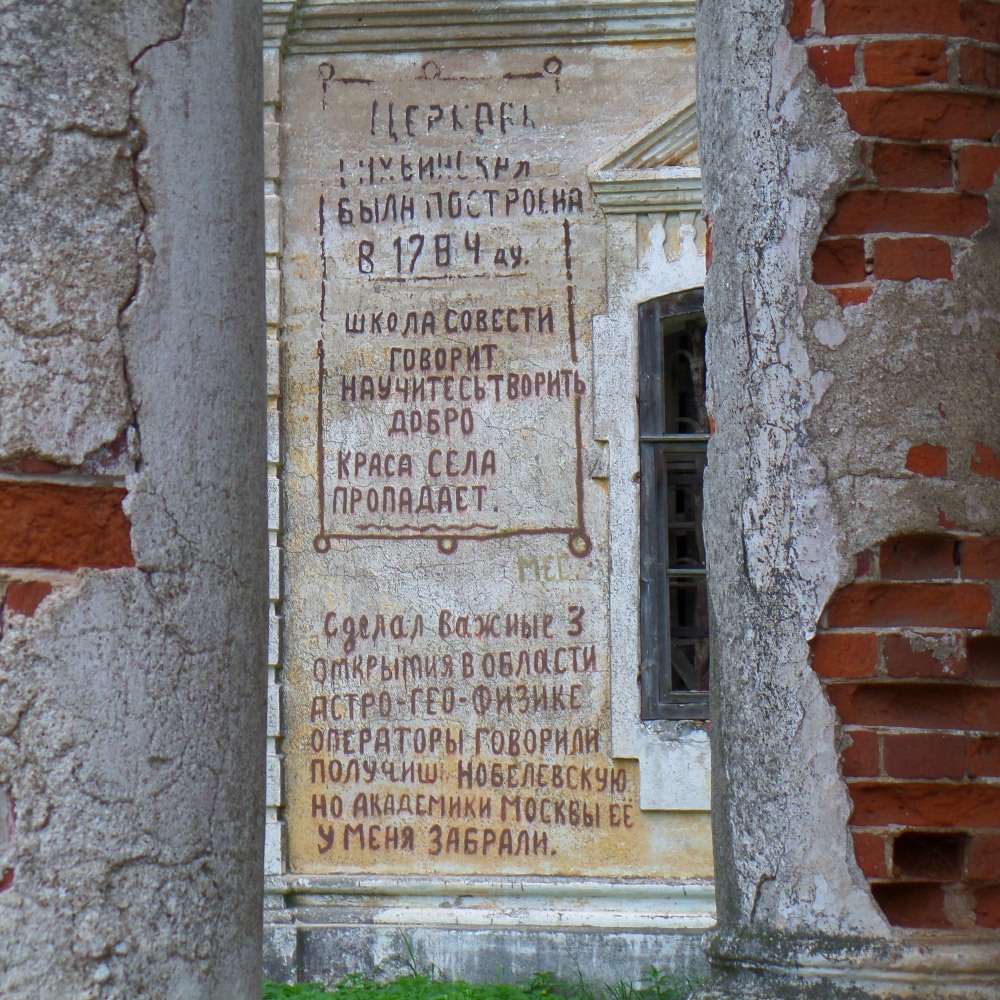 ЦЕРКВЬ
БЫЛА ПОСТРОЕНА
В 1784 ду.
ШКОЛА СОВЕСТИ
ГОВОРИТ
НАУЧИТЕСЬ ТВОРИТЬ
ДОБРО
КРАСА СЕЛА
ПРОПАДАЕТ.
Сделал Важные 3
ОТКРЫТИЯ В ОБЛАСТИ
АСТРО-ГЕО-ФИЗИКЕ
ОПЕРАТОРЫ ГОВОРИЛИ
ПОЛУЧИШ НОБЕЛЕВСКУЮ
НО АКАДЕМИКИ МОСКВЫ ЕЁ
У МЕНЯ ЗАБРАЛИ.